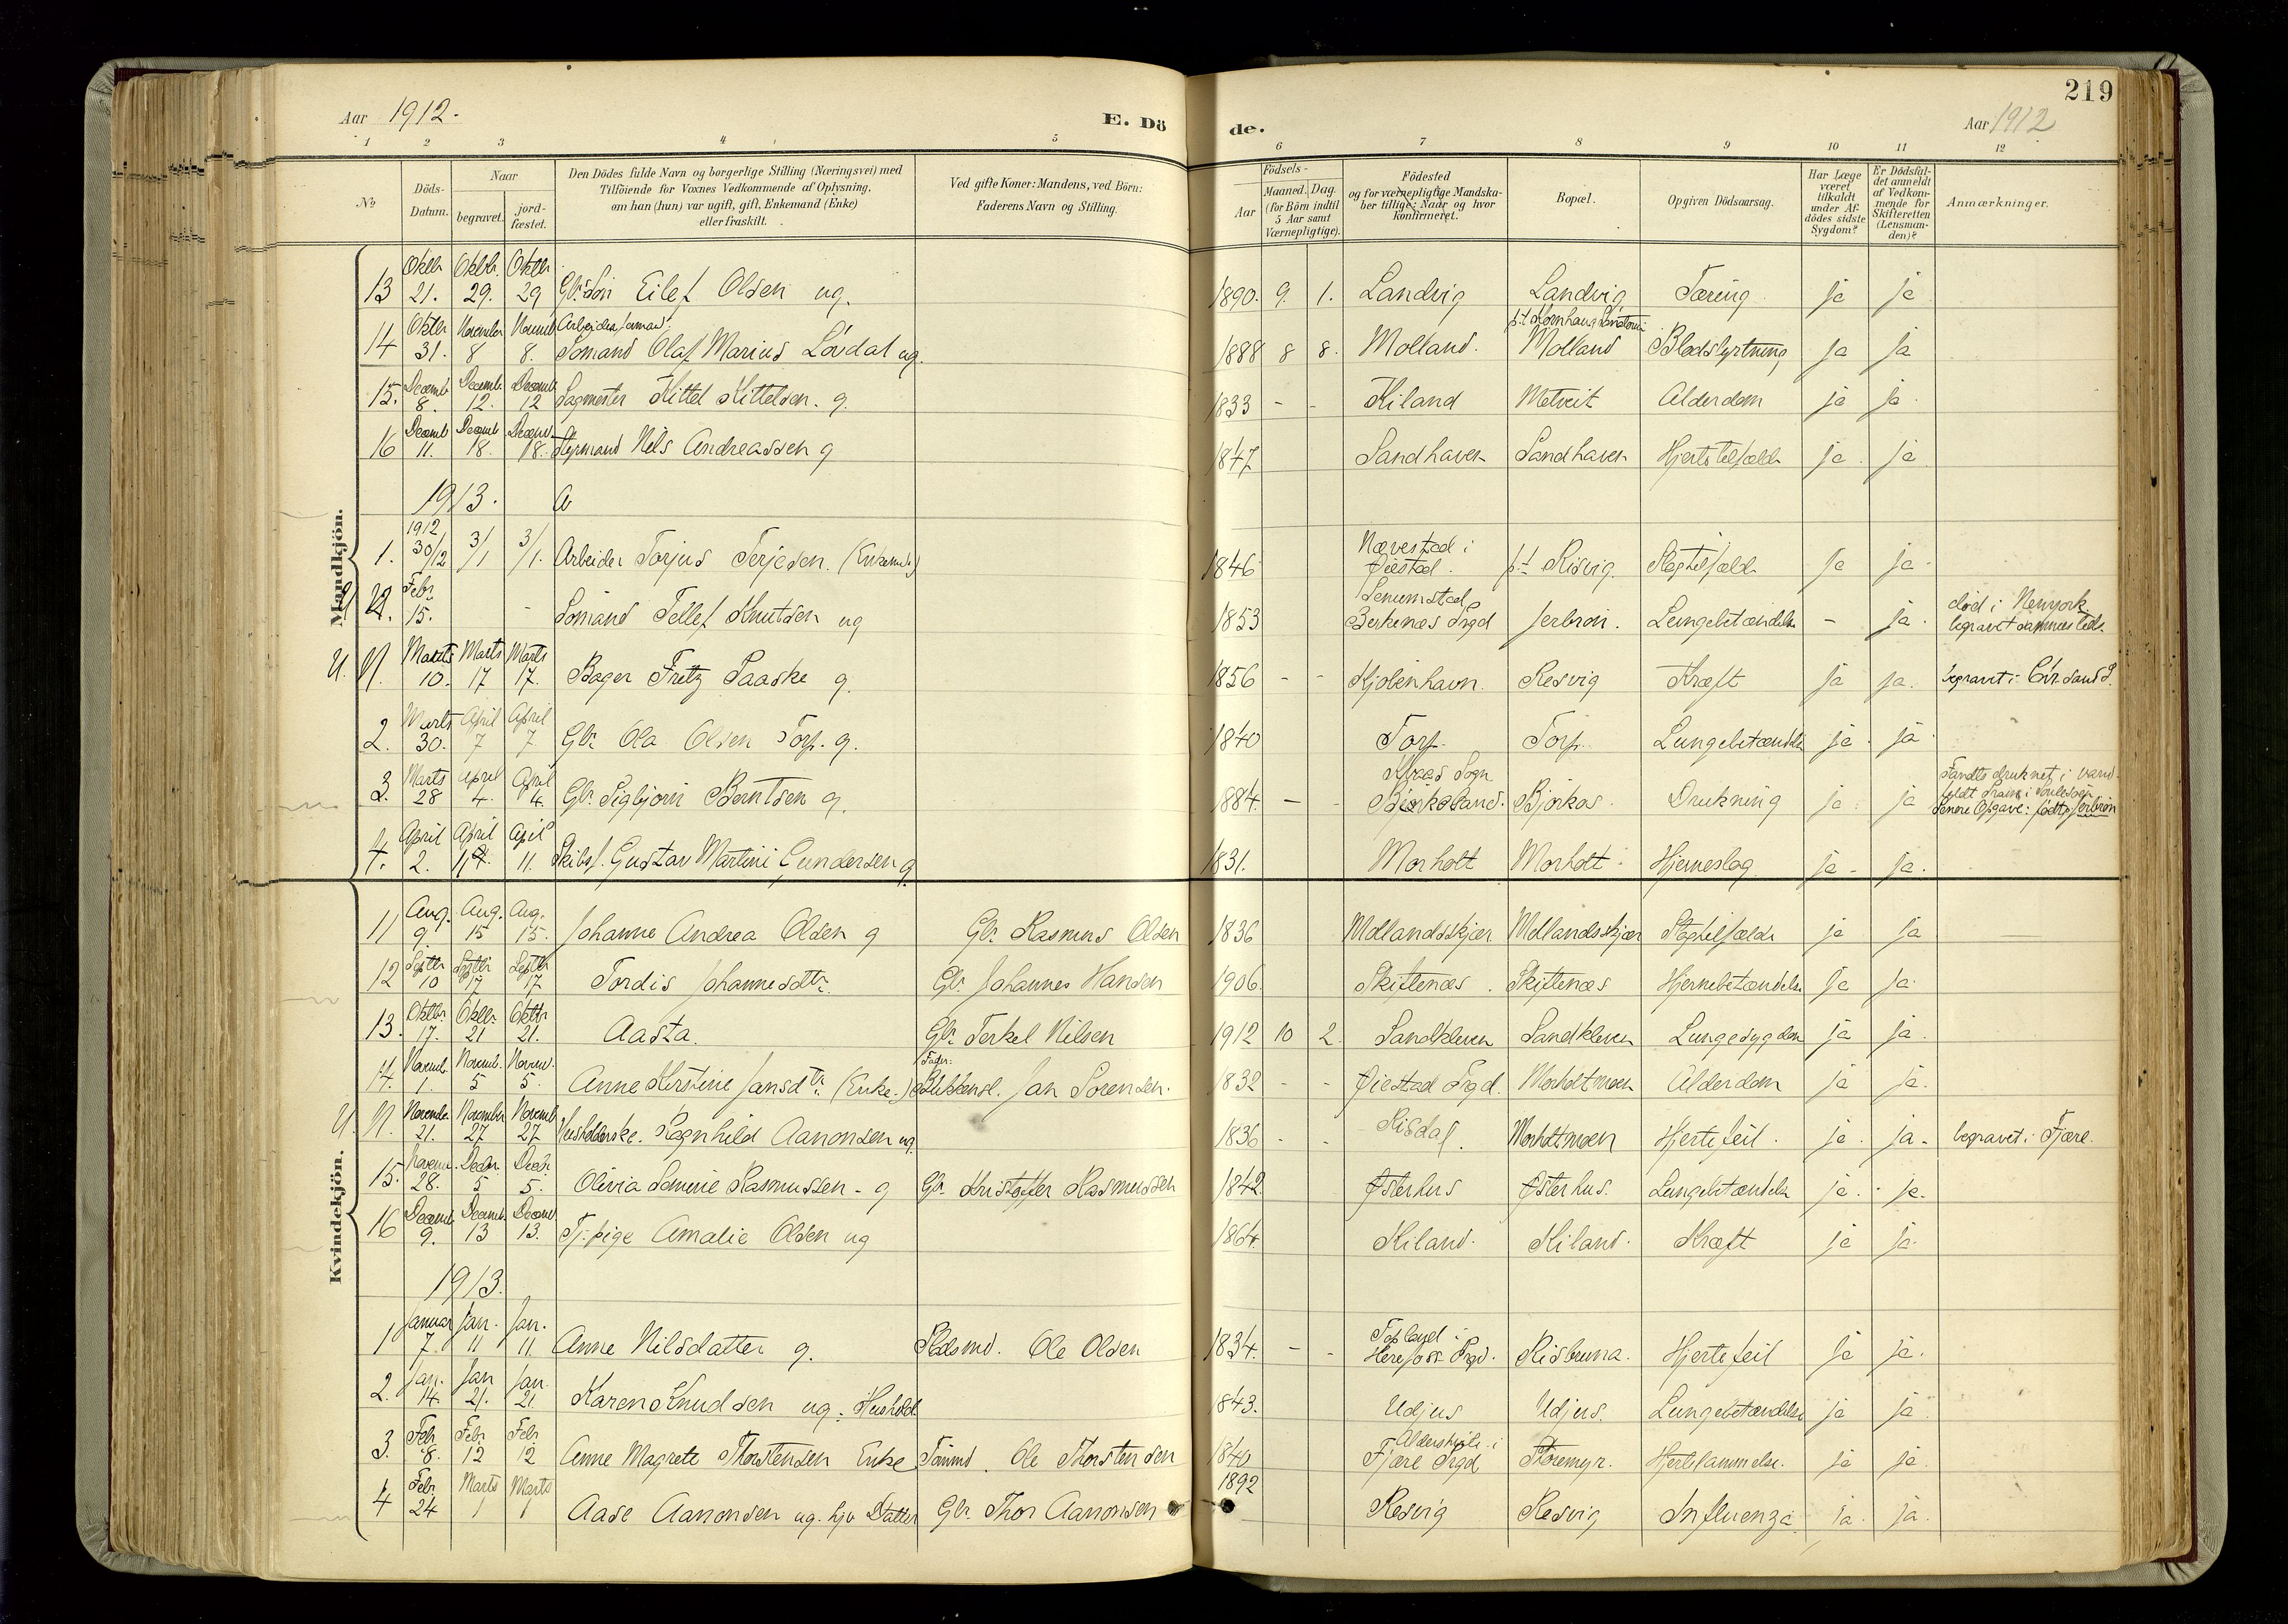 219
Aar 1912. E. Dö de. Aar 1912
1 2 3 4 5 6 7 8 9 10 11 12
No
Döds-Datum.
Naar
begravet.
jord-fæstet.
Den Dödes fulde Navn og borgerlige Stilling (Næringsvei) med
Tilföiende for Voxnes Vedkommende af Oplysning,
om han (hun) var ugift, gift, Enkemand (Enke)
eller fraskilt.
Ved gifte Koner: Mandens, ved Börn:
Faderens Navn og Stilling.
Födsels-
Aar
Maaned. Dag.
(for Börn indtil
5 Aar samt
Værnepligtige).
Födested
og for værnepligtige Mandska-
ber tillige: Naar og hvor
konfirmeret.
Bopæl.
Opgiven Dödsaarsag.
Har Læge
været
tilkaldt
under Af-
dödes sidste
Sygdom?
Er Dödsfal-
det anmeldt
af Vedkom-
mende for
Skifteretten
(Lensman-
den)?
Anmærkninger.
Mandkjön.
13 Oktbr 21. Oktbr. 29. Oktbr 29 Gbr. Sön Eilef Olsen ug. 1890. 9. 1. Landvig Landvig Tæring ja ja
Arbeider
14 Oktbr 31. November 8 Novemb 8. Sömand Olaf Marius Lövdal ug. 1888 8 8. Molland. Molland Blodstyrtning ja ja
15. Decemb 8. Decemb. 12. Decemb 12 Sagmester Kittel Kittelsen. g. 1833 - - Kiland Metveit Alderdom ja ja.
16 Decemb 11. Decemb. 18. Decemb. 18. Styrmand Nils Andreassen g 1847 Sandhaven Sandhaven Hjertetilfælde ja. ja
1913.
1. 1912 30/12 3/1 3/1. Arbeider Torjus Terjesen. (Enkemd.) 1846 Nævestad i Øiestad. p.t. Risvig. Slagtilfælde ja ja
U. Febr 15. - Sömand Tellef Knutsen ug 1853 Senumstad Berkenæs Prgd Jerbron. Lungebetændelse - ja. död i Newyork. begravet sammesteds.
U. N. Marts 10. Marts 17 Marts 17. Bager Fretz Paaske g. 1856 - - Kjöbenhavn. Resvig Kræft ja ja. begravet i Chr.sand S.
2. Marts 30. April 7 April 7 Gbr. Ola Olsen Torp. g. 1840 Torp. Torp. Lungebetændelse ja. ja.
3. Marts 28 April 4. April 4. Gbr. Sigbjörn Berntsen g. 1884. - - Sogn Björkeland. Björkos. Drukning ja. ja Fandts druknet i vand
Senere Opgave: født p. Jerbron
4. April 2. April 11. April 11. Skibsf. Gustav Martini Gundersen g. 1831. Morholt Morholt Hjerneslag ja - ja.
Kvindekjön.
11 Aug. 9 Aug. 15 Aug. 15. Johanne Andrea Olsen g Gbr. Rasmus Olsen 1836 Mollandsskjær Mollandsskjær Slagtilfælde ja ja
12 Septbr 10 Septbr 17 Septbr 17 Tordis Johannesdtr. Gbr. Johannes Hansen 1906. Skiftenæs. Skiftenæs Hjernebetændelse ja ja.
13. Oktbr. 17. Oktbr. 21 Oktbr 21. Aasta. Gbr. Terkel Nilsen 1912 10 2. Sandkleven Sandkleven Lungesygdom ja ja.
14. Novemb. 1. Novemb. 5 Novemb. 5. Anne Kirstine Jansdtr. (Enke.) Fader: Jan Sörensen. 1832 - - Øiestad Prgd. Morholtmoen Alderdom ja ja.
U. N. Novembr 21. November 27 Novemb 27 Husholderske. Ragnhild Aanonsen ug. 1836 - - Risdal. Morholtmoen Hjertefeil. ja. ja. begravet i Fjære.
15. Novemb 28. Decbr. 5 Decbr 5. Olivia Severine Rasmussen - g Gbr. Kristoffer Rasmussen 1842. Østerhus Østerhus. Lungebetændelse ja. ja.
16 Decemb 9. Decemb. 13 Decemb 13. Tj. pige Amalie Olsen ug 1864. Kiland. Kiland. Kræft ja ja.
1913.
1 Januar 7. Jan. 11 Jan. 11. Anne Nilsdatter g. Pladsmd. Ole Olsen 1834. - - Topland i Herefoss Prgd. Risbruna. Hjertefeil ja ja.
2. Jan. 14. Jan 21. Jan. 21. Karen Knudsen ug. Hushold 1843. Udjus Udjus. Lungebetændelse ja ja
3. Febr. 8. Febr 12 Febr 12 Anne Magrete Thorstensen Enke Tömmd. Ole Thorstensen 1840 Fjære Prgd Storemyr. Hjertelammelse. ja ja.
4 Febr. 24 Marts 1 Marts 1 Aase Aanonsen ug. hjv Datter Gbr. Thor Aanonsen 1892 Resvig Resvig Influenza ja. ja.